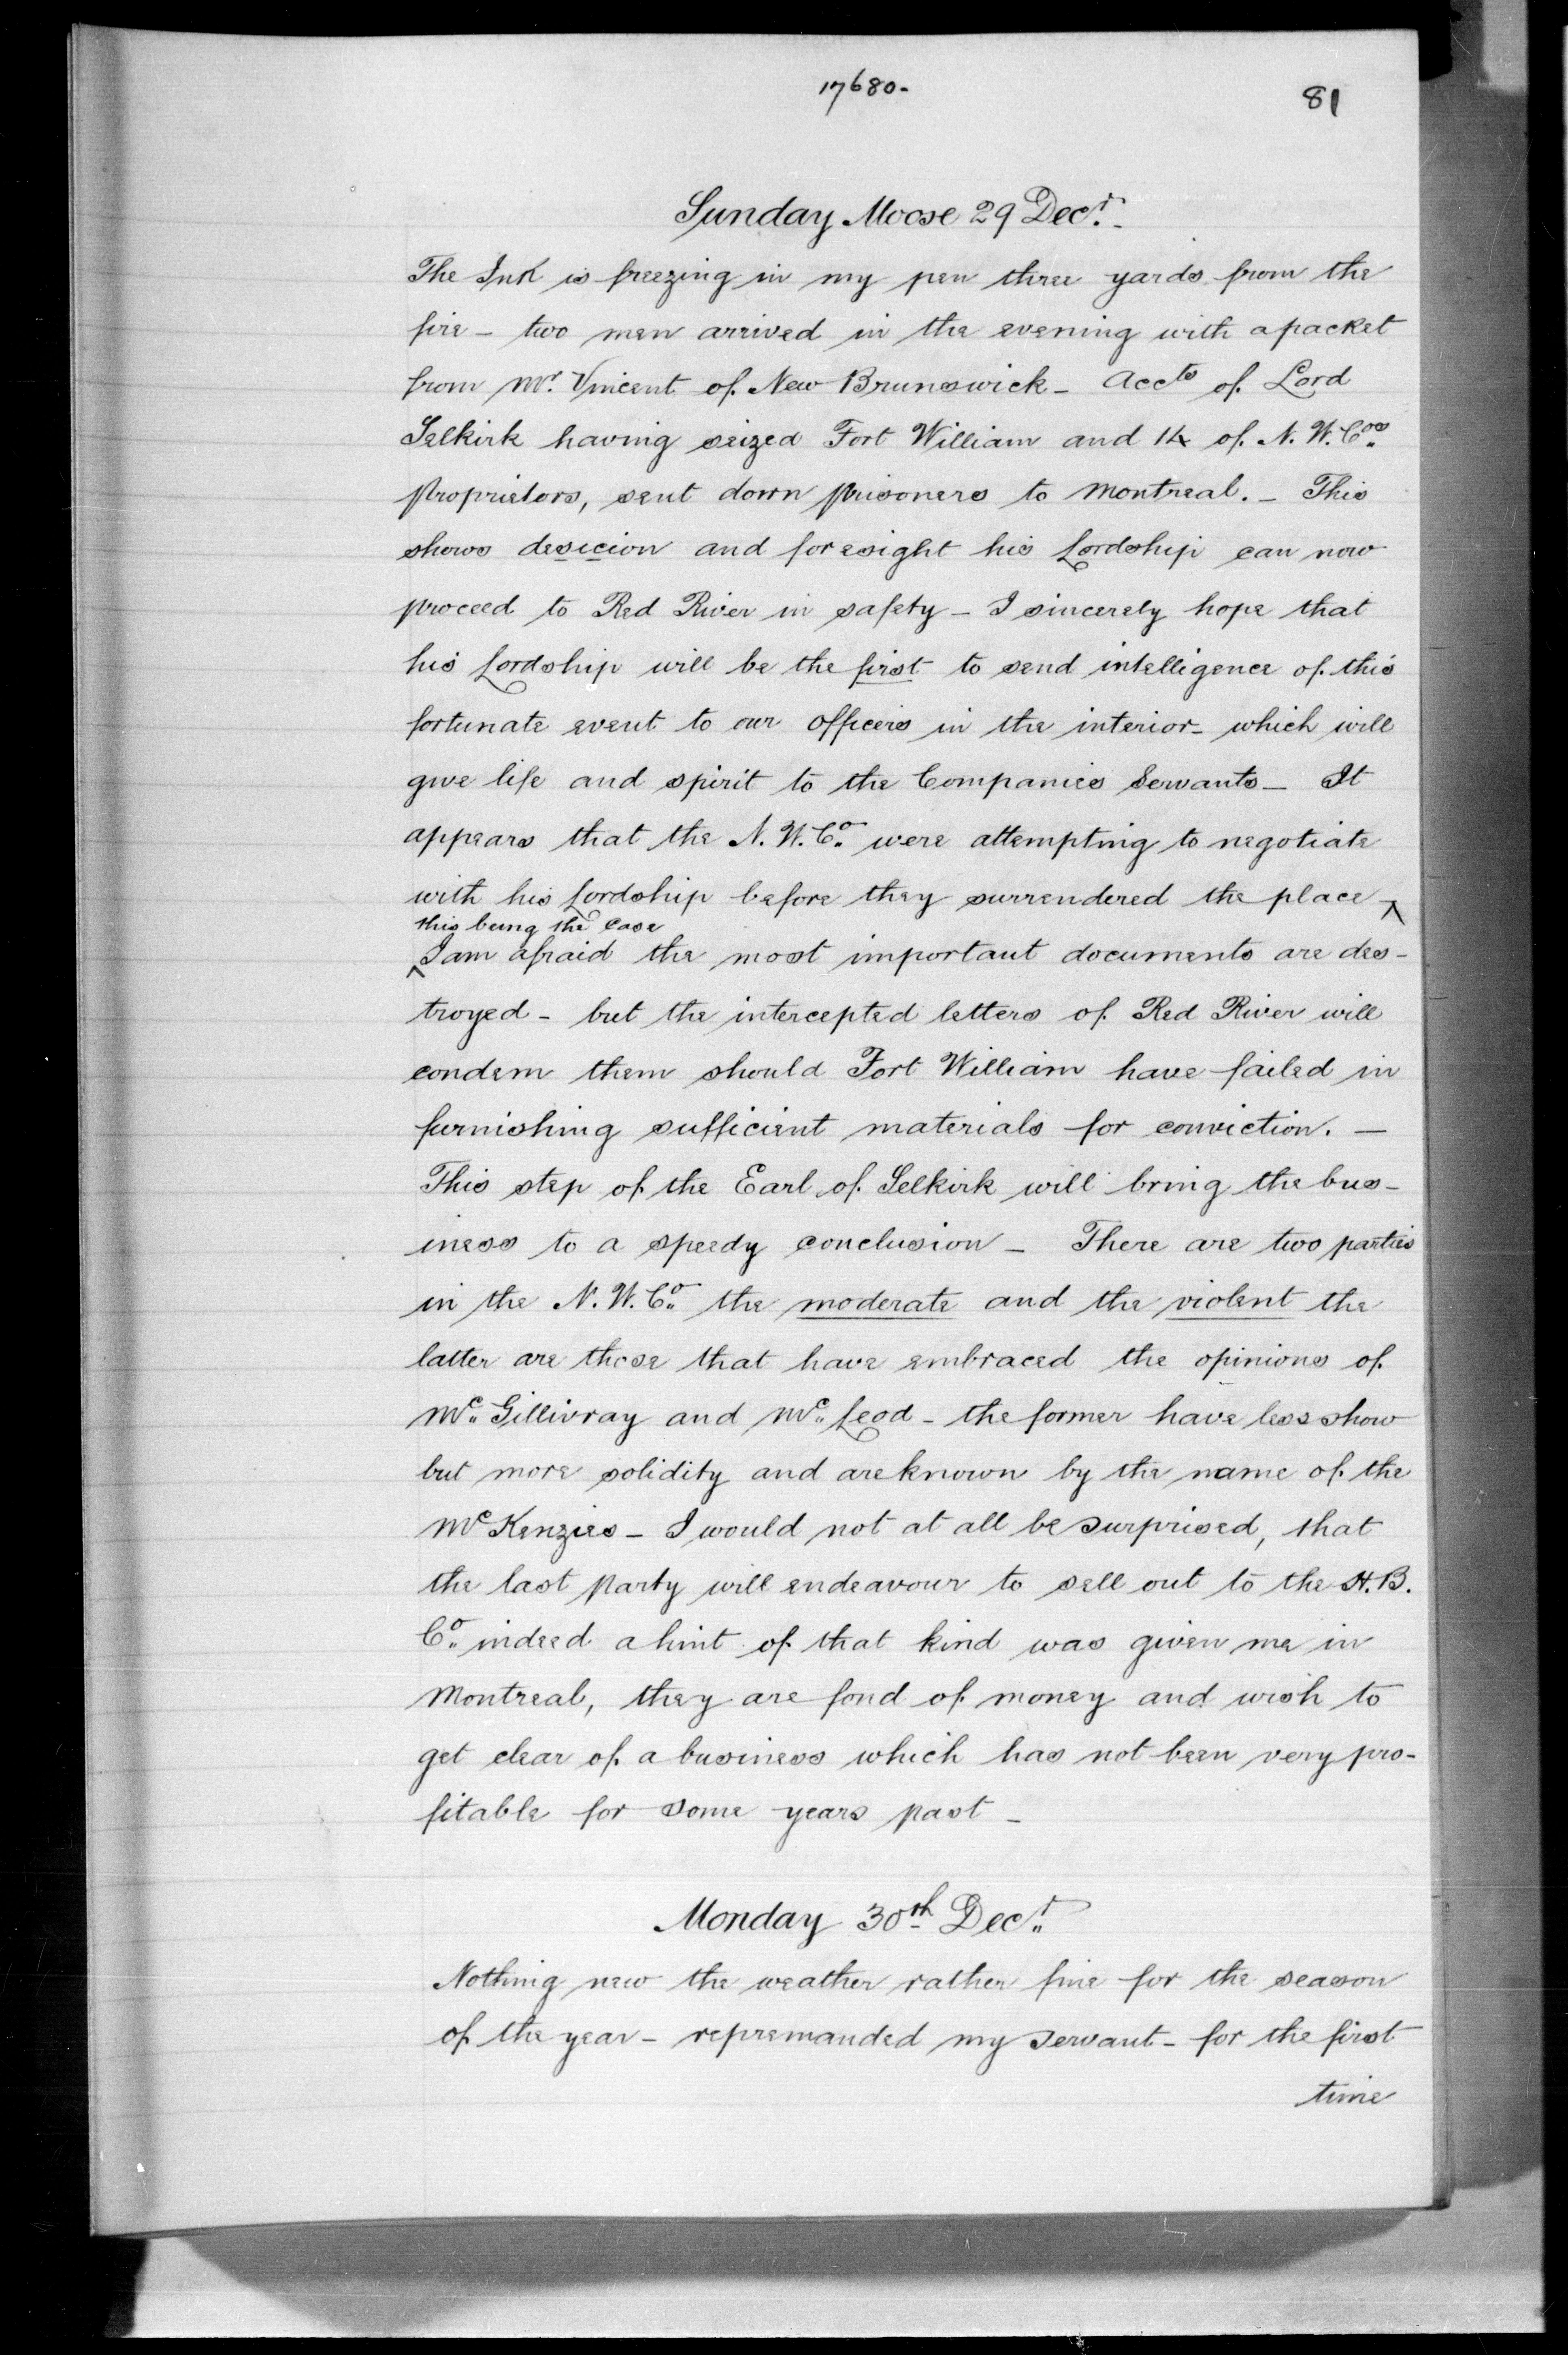 17680-
81
Sunday Moose 29 Decr.-
The Ink is freezing in my pen three yards from the
fire - two men arrived in the evening with a packet
from Mr. Vincent of New Brunswick - Accts of Lord
Selkirk having seized Fort William and 14 of N. W. Cos.
Proprietors, sent down prisoners to Montreal. - This
shows desicion and foresight his Lordship can now
proceed to Red River in safety - I sincerely hope that
his Lordship will be the first to send intelligence of this
fortunate event to our Officers in the interior - which will
give life and spirit to the Companies Servants - It
appears that the N. W. Co. were attempting to negotiate
with his Lordship before they surrendered the place ^
this being the case
^ I am afraid the most important documents are des-
troyed - but the intercepted letters of Red River will
condem them should Fort William have failed in
furnishing sufficient materials for conviction. -
This step of the Earl of Selkirk will bring the bus-
iness to a speedy conclusion - There are two parties
in the N. W. Co. the moderate and the violent the
latter are those that have embraced the opinions of
Mc. Gillivray and Mc. Leod - the former have less show
but more solidity and are known by the name of the
McKenzies - I would not at all be surprised, that
the last party will endeavour to sell out to the H. B.
Co. indeed a hint of that kind was given me in
Montreal, they are fond of money and wish to
get clear of a business which has not been very pro-
fitable for some years past -
Monday 30th Decr.
Nothing new the weather rather fine for the season
of the year - repremanded my servant - for the first
time